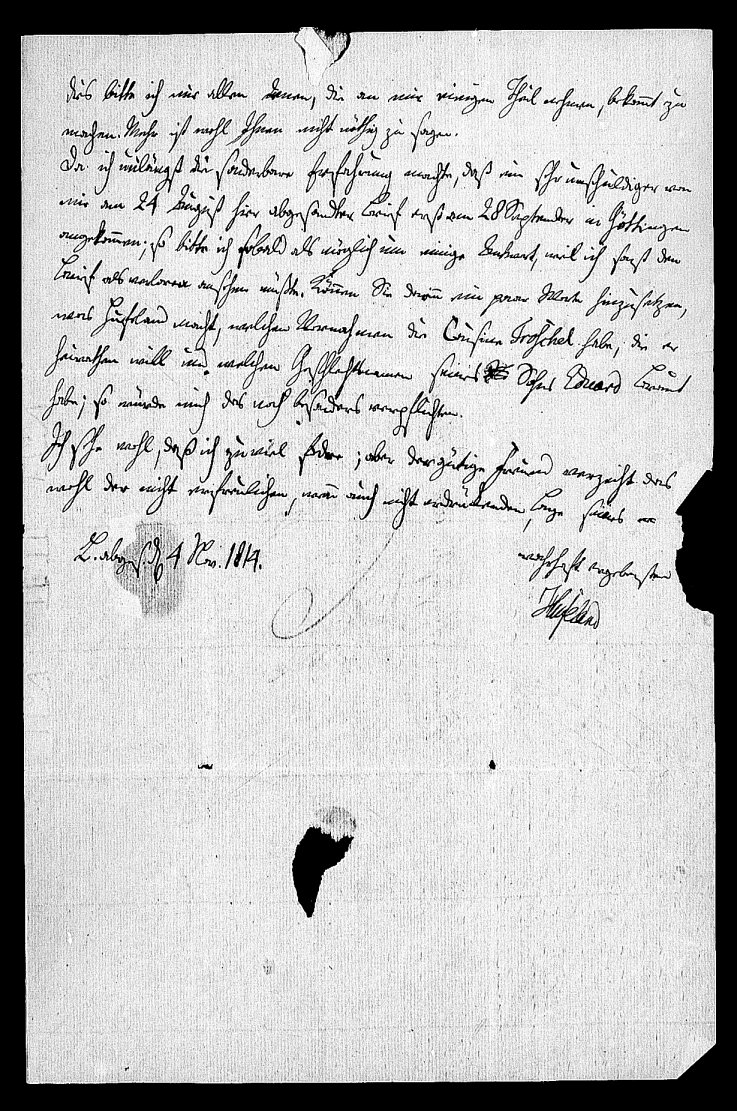 dies bitte ich nur allen denen, die an mir einigen Theil nehmen, bekannt zu
machen. Mehr ist wohl Ihnen nicht nöthig zu sagen.
Da ich unlängst die sonderbare Erfahrung machte, daß ein sehr unschuldiger von
mir am 24 August hier abgesandter Brief erst am 28 September in Göttingen
angekommen; so bitte ich sobald als möglich um einige Antwort, weil ich sonst den
Brief als verloren ansehen müßte. Können Sie darin ein paar Worte hinzusetzen,
was Hufeland macht, welchen Vornahmen die Cousine Froschel habe, die er
heirathen will und welchen Geschlechtsnamen seines Sohns Eduard Braut
habe; so würde mich das noch besonders verpflichten.
Ich sehe wohl, daß ich zu viel fodre; aber der gütige Freund verzeiht das
wohl der nicht erfreulichen, wenn auch nicht erdrückenden, Lage seines
L. abges. d. 4 Nov. 1814.
wahrhaft ergebensten
Hufeland